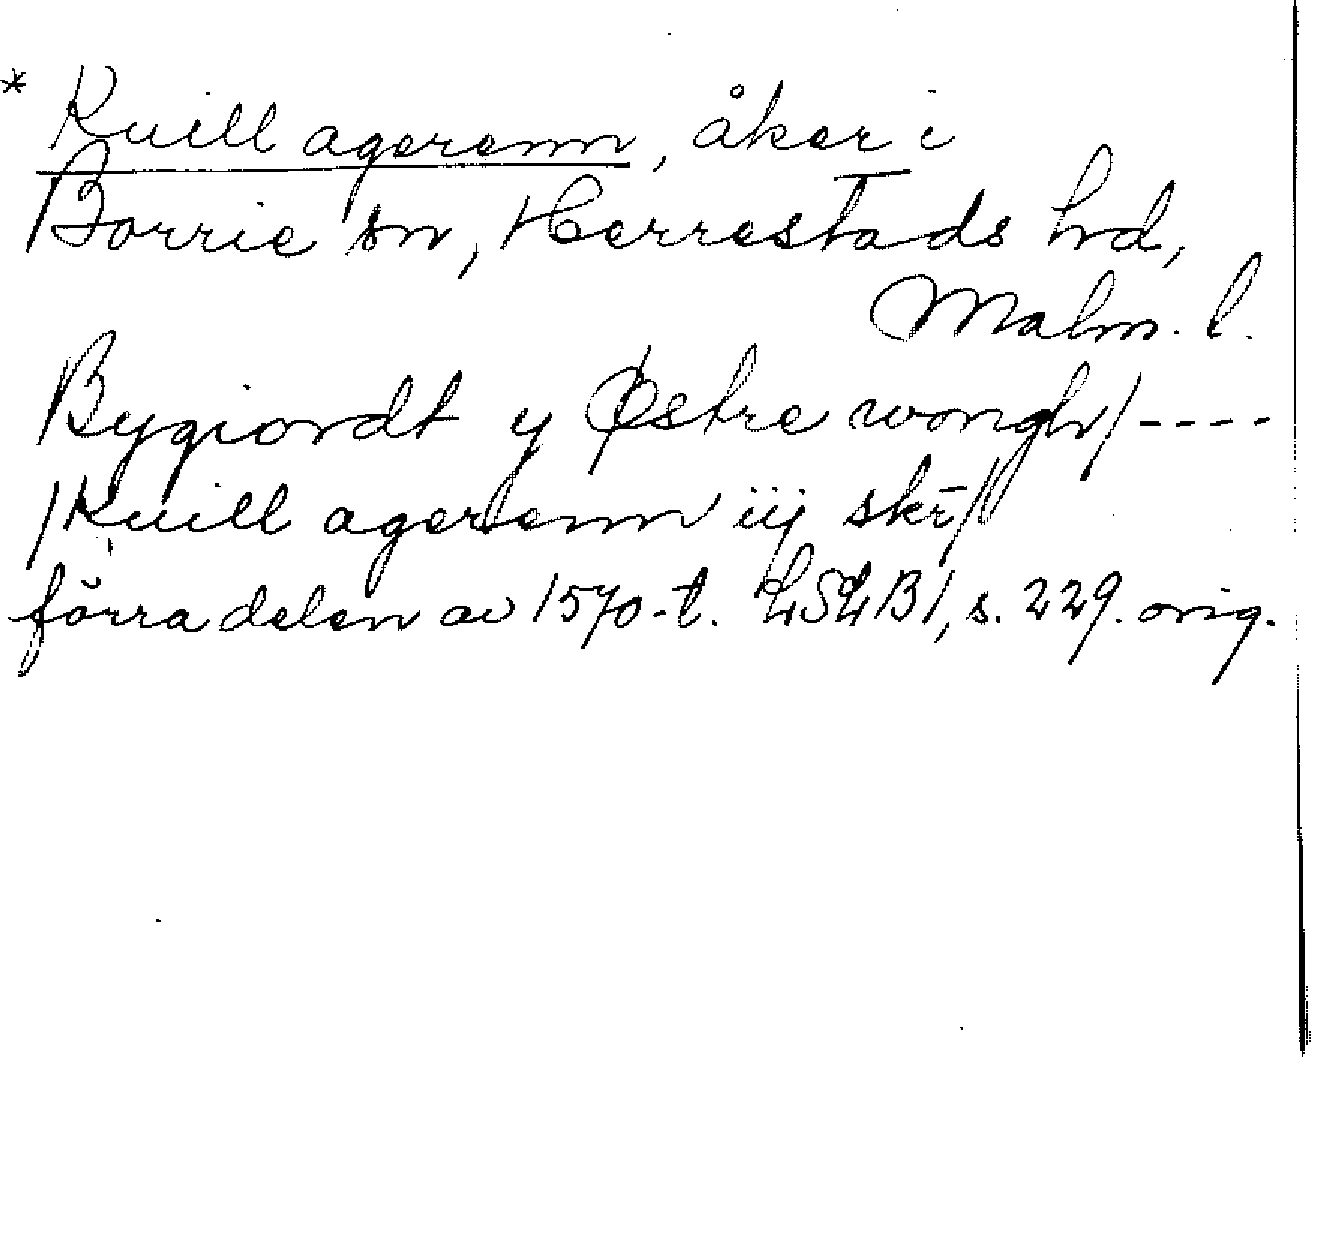 * Kuill agerenn, åker i
Borrie sn, Herrestads hd,
Malm. l.
Bygiordt y Østre wongh/----
/Kuill agerenn iij skr̄/
förra delen av 1570-t. LSLB1, s. 229. orig.